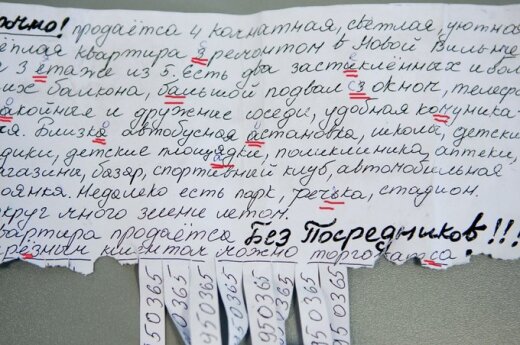 рочно! продаётса 4 комнатная, светлая, уютная
тёплая квартира з ремонтом в Новой Вильне
а 3 етаже из 5. есть два застиклённых и бол
их балкона, бальшой подвал з окном, телеф
пакойные и дружние соседи, удобная комуника
ия. Близкя автобусная астановка, школа, детски
адики, детские площядки, поликлиника, аптеки,
агазины, базар, спортивный клуб, автомобильная
оянка. Недалеко есть парк, речька, стадион.
округ много зелени летом.
вартира продаётса Без Посредников!!!
ерёзним клиентам можно торговатса!
950365
950365
950365
950365
950365
950365
950365